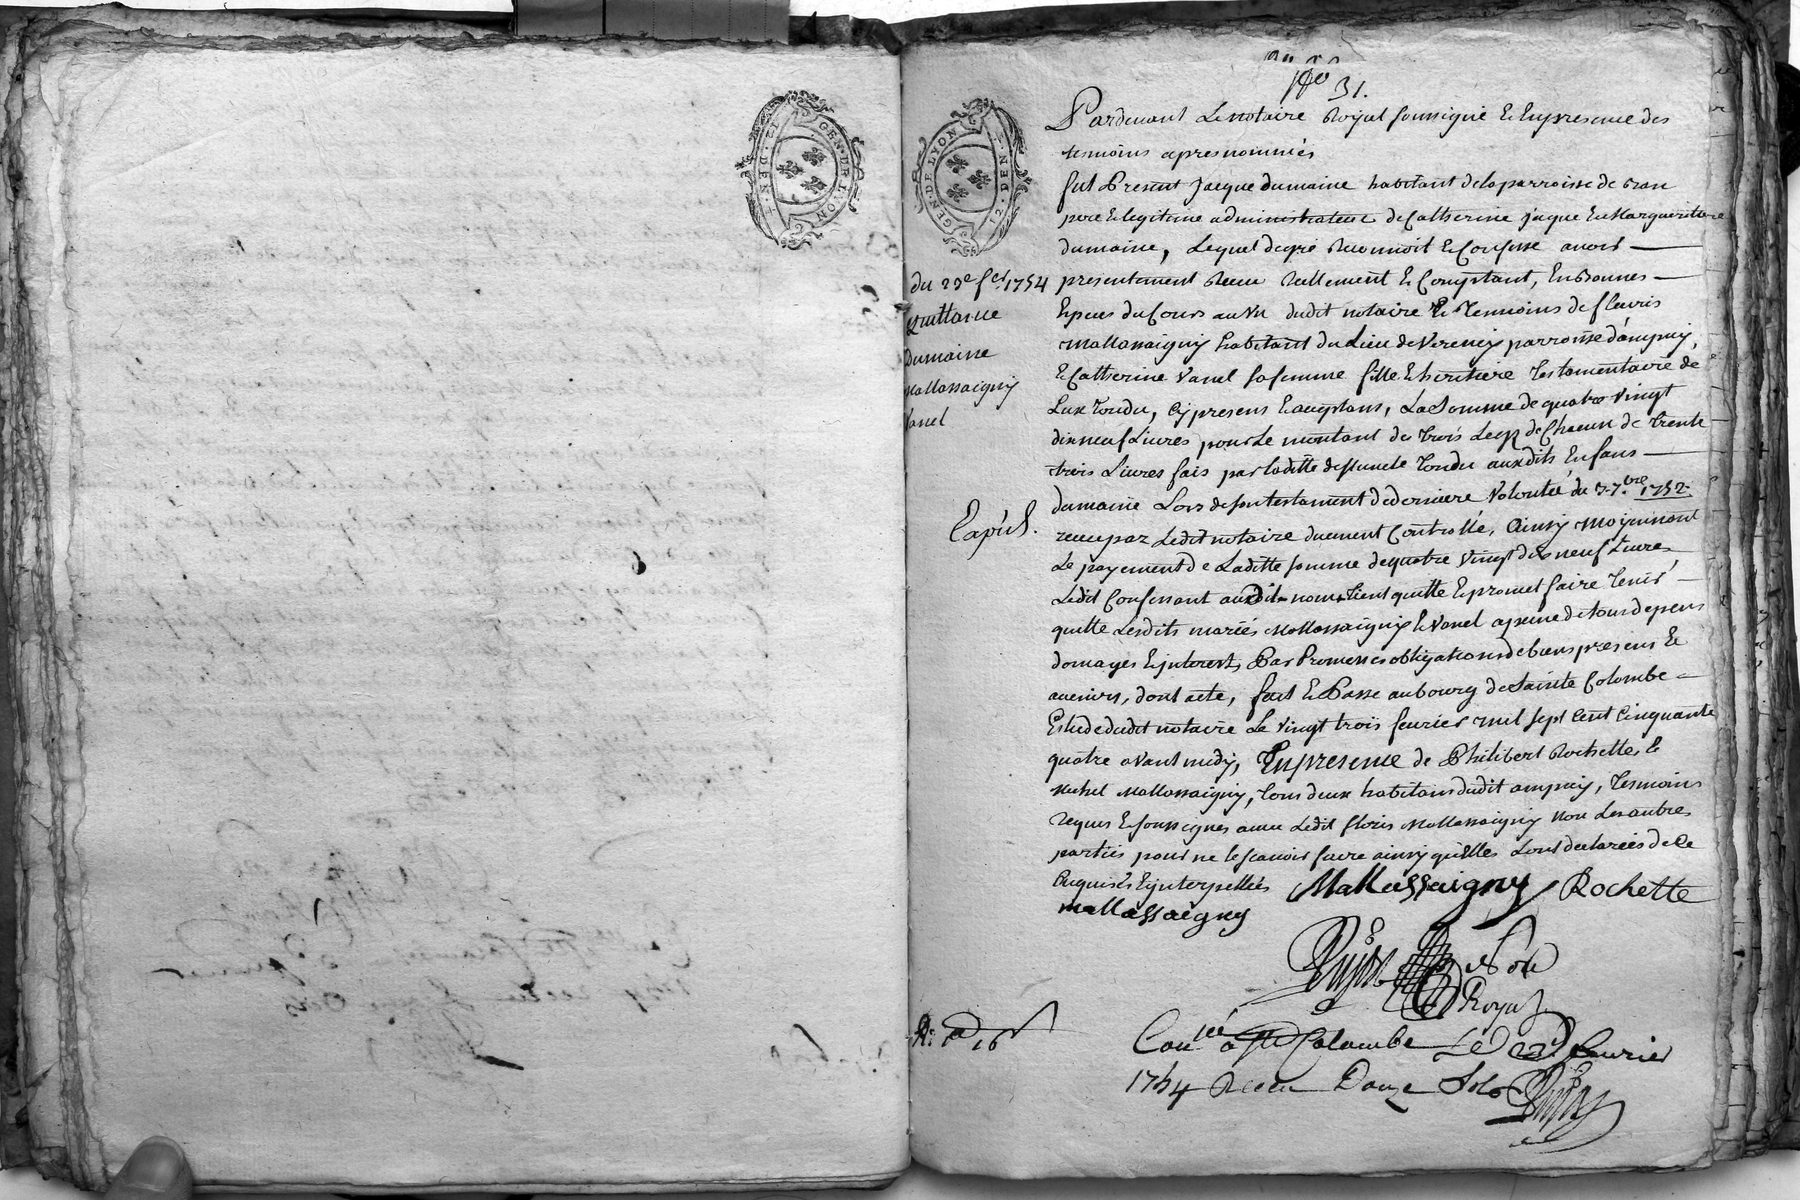 12. DEN. T.
GEN. DE LYON
GEN. DE LYON
12. DEN. T.
31.
Pardevant Le notaire Royal soussigné & En presence des
tesmoins apres nommés
fut Present Jacque dumaine habitant de la parroisse de
pere & legitime administrateur de Catherine jaque & Margueritte
dumaine, Lequel de gré Reconnoit & Confesse avoir
presentement Receu Reellement & Comptant, En Bonnes
Especes du Cours au vu dudit notaire & Temoins de fleuris
Mallassaigny habitant du Lieu de Vereney parroisse d'ampuy,
& Catherine Vanel sa femme fille & heritiere Testamentaire de
Tondu, Cy presens & acceptans, La Somme de quatre vingt
dix neuf Livres pour Le montant de trois Legs de Chacun de trente
trois Livres fais par laditte deffuncte Tondu auxdits Enfans
dumaine Lors de son testament de derniere Volontée du 7.bre 1752.
receu par Ledit notaire duement Controllé, Ainsy Moyennant
Le payement de Laditte somme de quatre vingt dix neuf Livres
Ledit Confessant audit nom tient quitte & promet faire Tenir
quitte Lesdits mariés Mallassaigny & Vanel a peine de tous depens
domages & jnterest, Par Promesses obligations de biens presens &
avenirs, dont acte, fait & Passé au bourg de Sainte Colombe
Estude dudit notaire Le vingt trois fevrier mil sept Cent Cinquante
quatre avant midy, En presence de Philibert Rochette, &
Michel Mallassaigny, tous deux habitans dudit ampuy, Tesmoins
Requis & soussignes avec Ledit floris Mallassaigny non Les autres
parties pour ne le scavoir faire ainsy qu'Elles L'ont declarées de Ce
Enquises & jnterpellés Mallassaigny Rochette
mallassaigny
Royal
a Ste Colombe Le 23 fevrier
1754 Receu Douze Sols
du 23e fer. 1754
quittance
Dumaine
Mallassaigny
Vanel
Expéd.